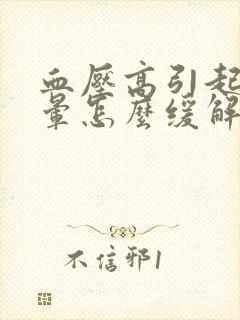 血壓高引起
暈怎麼緩解
不信邪1